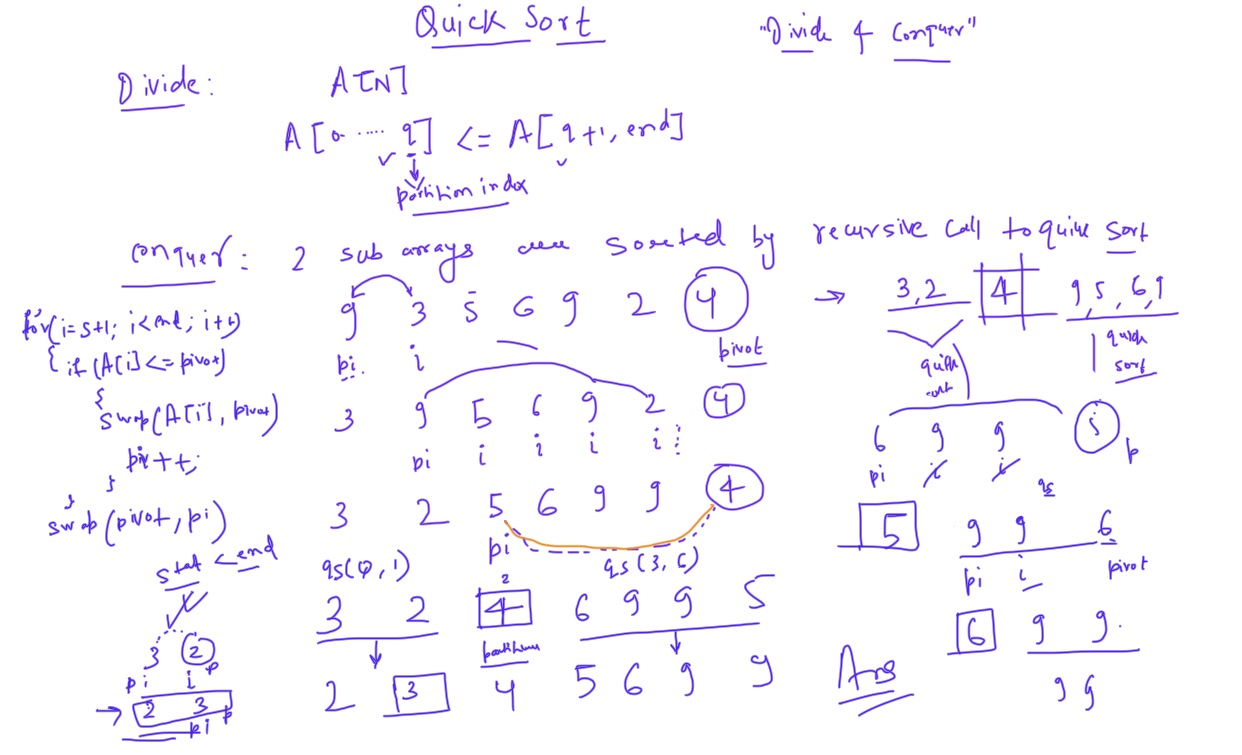 Quick Sort
"Divide & Conquer"
Divide: A[N]
A[0 ..... q] <= A[q+1, end]
partition index
conquer: 2 sub arrays are sorted by recursive call to quick sort
for(i=s+1; i<end; i++)
{ if (A[i]<=pivot)
{
swap(A[i], pivot)
pi++;
}
}
swap(pivot, pi)
start < end
3 2
pi i p
2 3
pi p
9 3 5 6 9 2 4
pi i pivot
3 9 5 6 9 2 4
pi i i i i
3 2 5 6 9 9 4
pi
qs(0, 1) qs(3, 6)
2
3 2 4 6 9 9 5
2 3 4 5 6 9 9
Ans
3, 2 4 9, 5, 6, 9
quick sort
quick sort
6 9 9 5
pi i i p
qs
5 9 9 6
pi i pivot
6 9 9
9 9